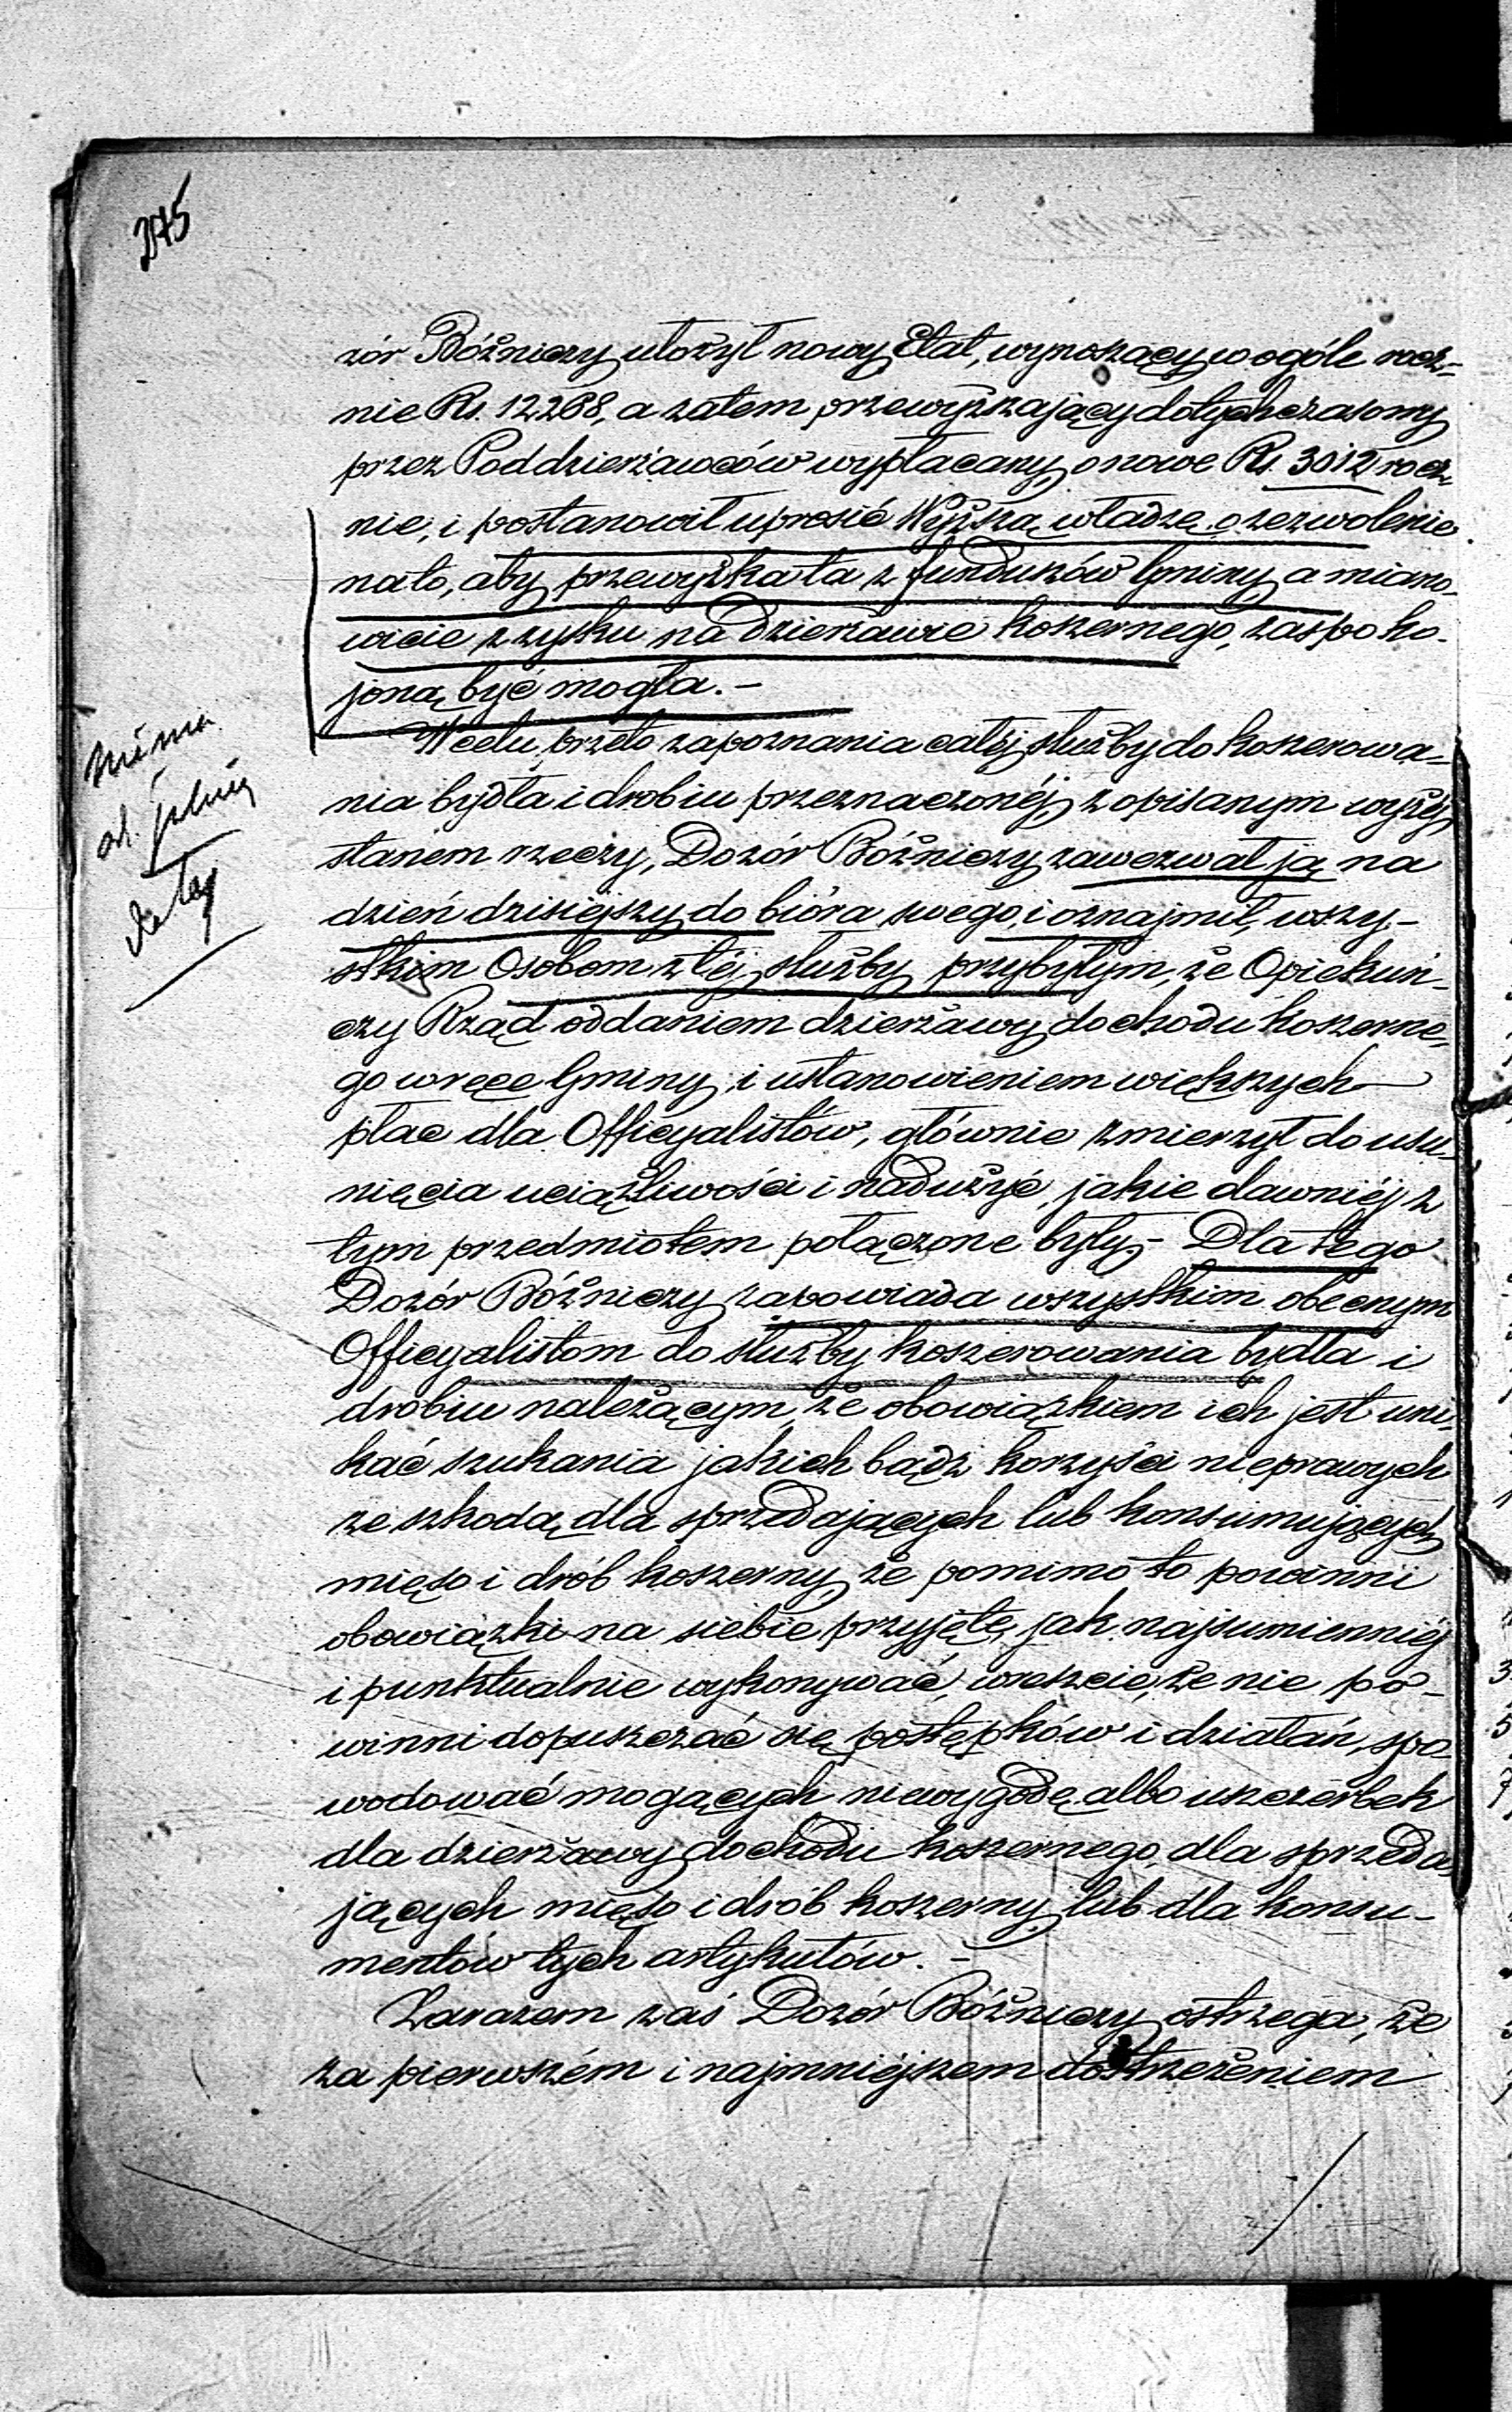 275
zór Bóżniczy ułożył nowy Etat, wynoszący w ogóle rocz-
nie Rs. 12268, a zatem przewyższający dotychczasowy
przez Poddzierżawców wypłacany, o nowe Rs. 3012 rocz-
nie, i postanowił uprosić Wyższą władzę o zezwolenie
na to, aby przewyżka ta z funduszów Gminy, a miano-
wicie z zysku na dzierżawie koszernego, zaspoko-
joną być mogła. –
W celu przeto zapoznania całéj służby do koszerowa-
nia bydła i drobiu przeznaczonéj, z opisanym wyżéj
stanem rzeczy, Dozór Bóżniczy zawezwał ją na
dzień dzisiejszy do bióra swego, i oznajmił wszy-
stkim Osobom z téj służby przybyłym, że Opiekuń-
czy Rząd oddaniem dzierżawy dochodu koszerne-
go w ręce Gminy, i ustanowieniem większych
płac dla Officyalistów, głównie zmierzył do usu-
nięcia uciążliwości i nadużyć, jakie dawniéj z
tym przedmiotem połączone były, – Dla tego
Dozór Bóżniczy zapowiada wszystkim obecnym
Officyalistom do służby koszerowania bydła i
drobiu należącym, że obowiązkiem ich jest uni-
kać szukania jakich bądź korzyści nieprawych
ze szkodą dla sprzedających lub konsumujących
mięso i drób koszerny, że pomimo to powinni
obowiązki na siebie przyjęte, jak najsumienniéj
i punktualnie wykonywać, wreszcie, że nie po-
winni dopuszczać się postępków i działań, spo-
wodować mogących niewygodę albo uszczerbek
dla dzierżawy dochodu koszernego, dla sprzeda-
jących mięso i drób koszerny, lub dla konsu-
mentów tych artykułów. –
Zarazem zaś Dozór Bóżniczy ostrzega, że
za pierwszém i najmniejszem dostrzeżeniem